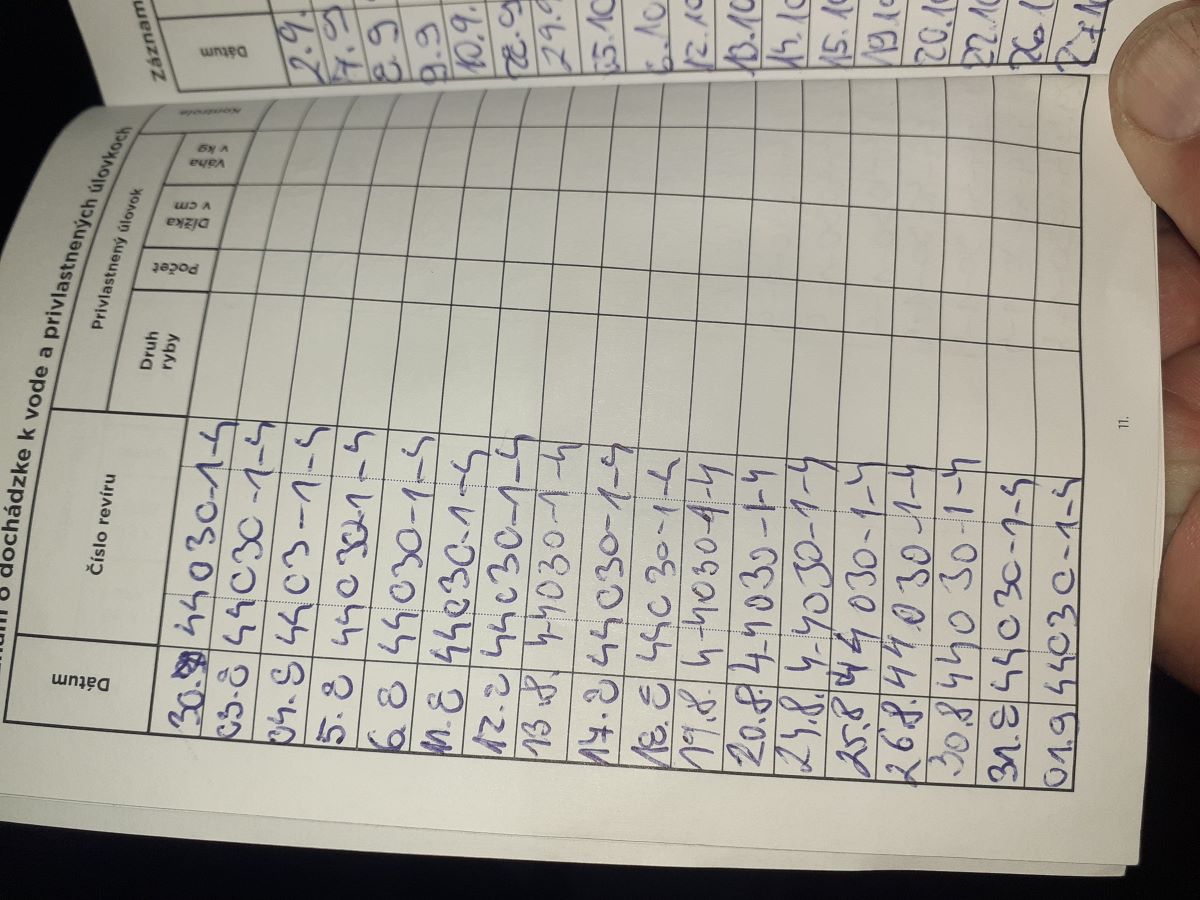 Záznam o dochádzke k vode a privlastnených úlovkoch
Dátum
Číslo revíru
Privlastnený úlovok
Druh
ryby
Počet
Dĺžka
v cm
Váha
v kg
Kontrola
30. 44030-1-4
03.8 44030-1-4
04.8 4403--1-4
5.8 44030-1-4
6.8 44030-1-4
11.8 44030-1-4
12.8 44030-1-4
13.8. 4-4030-1-4
17.8 44030-1-4
18.8 44030-1-4
19.8. 4-4030-1-4
20.8. 4-4030-1-4
24.8. 4-4030-1-4
25.8 44030-1-4
26.8. 44030-1-4
30.8 44030-1-4
31.8 44030-1-4
01.9 44030-1-4
11.
Záznam
Dátum
2.9.
7.9
8.9
9.9
10.9.
29.9
5.10
12.10
13.10
14.10
15.10
19.10
20.10
22.10
26.1
27.10